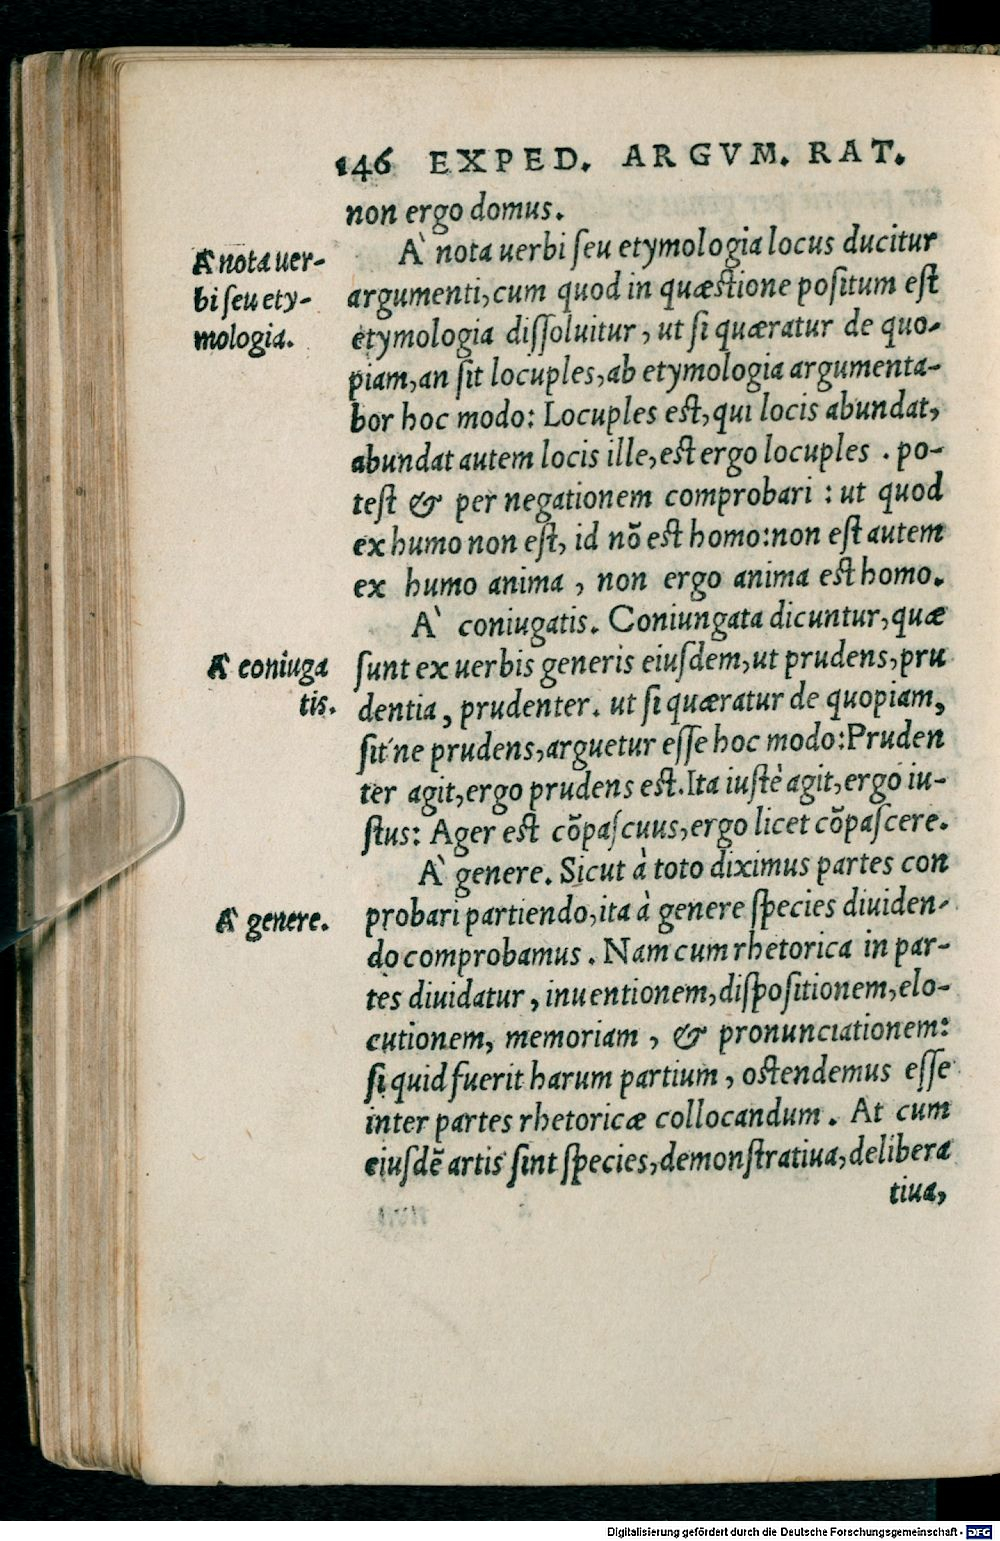 146 EXPED. ARGVM. RAT.
non ergo domus.
À nota uerbi ſeu etymologia locus ducitur
A nota uer-
bi ſeu ety-
mologia.
argumenti, cum quod in quæſtione poſitum eſt
etymologia diſſoluitur, ut ſi quæratur de quo-
piam, an ſit locuples, ab etymologia argumenta-
bor hoc modo: Locuples eſt, qui locis abundat,
abundat autem locis ille, eſt ergo locuples. po-
teſt & per negationem comprobari: ut quod
ex humo non eſt, id nõ eſt homo: non eſt autem
ex humo anima, non ergo anima eſt homo.
À coniugatis. Coniungata dicuntur, quæ
A coniuga
tis.
ſunt ex uerbis generis eiuſdem, ut prudens, pru
dentia, prudenter. ut ſi quæratur de quopiam,
ſit ne prudens, arguetur eſſe hoc modo: Pruden
ter agit, ergo prudens eſt. Ita iuſtè agit, ergo iu-
ſtus: Ager eſt cõpaſcuus, ergo licet cõpaſcere.
À genere. Sicut à toto diximus partes con
A genere.
probari partiendo, ita à genere ſpecies diuiden-
do comprobamus. Nam cum rhetorica in par-
tes diuidatur, inuentionem, diſpoſitionem, elo-
cutionem, memoriam, & pronunciationem:
ſi quid fuerit harum partium, oſtendemus eſſe
inter partes rhetoricæ collocandum. At cum
eiuſdẽ artis ſint ſpecies, demonſtratiua, delibera
tiua,
Digitalisierung gefördert durch die Deutsche Forschungsgemeinschaft - DFG